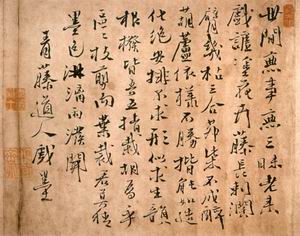 世間無事無三昧老來
戲謔塗花卉藤長刺闊
臂幾枯三合茅柴不成醉
葫蘆依樣不勝揩能如造
化絕安排不求形似求生韻
根撥皆吾五指栽胡為乎
區區枝剪而葉裁君莫猜
墨色淋漓雨撥開
青藤道人戲墨